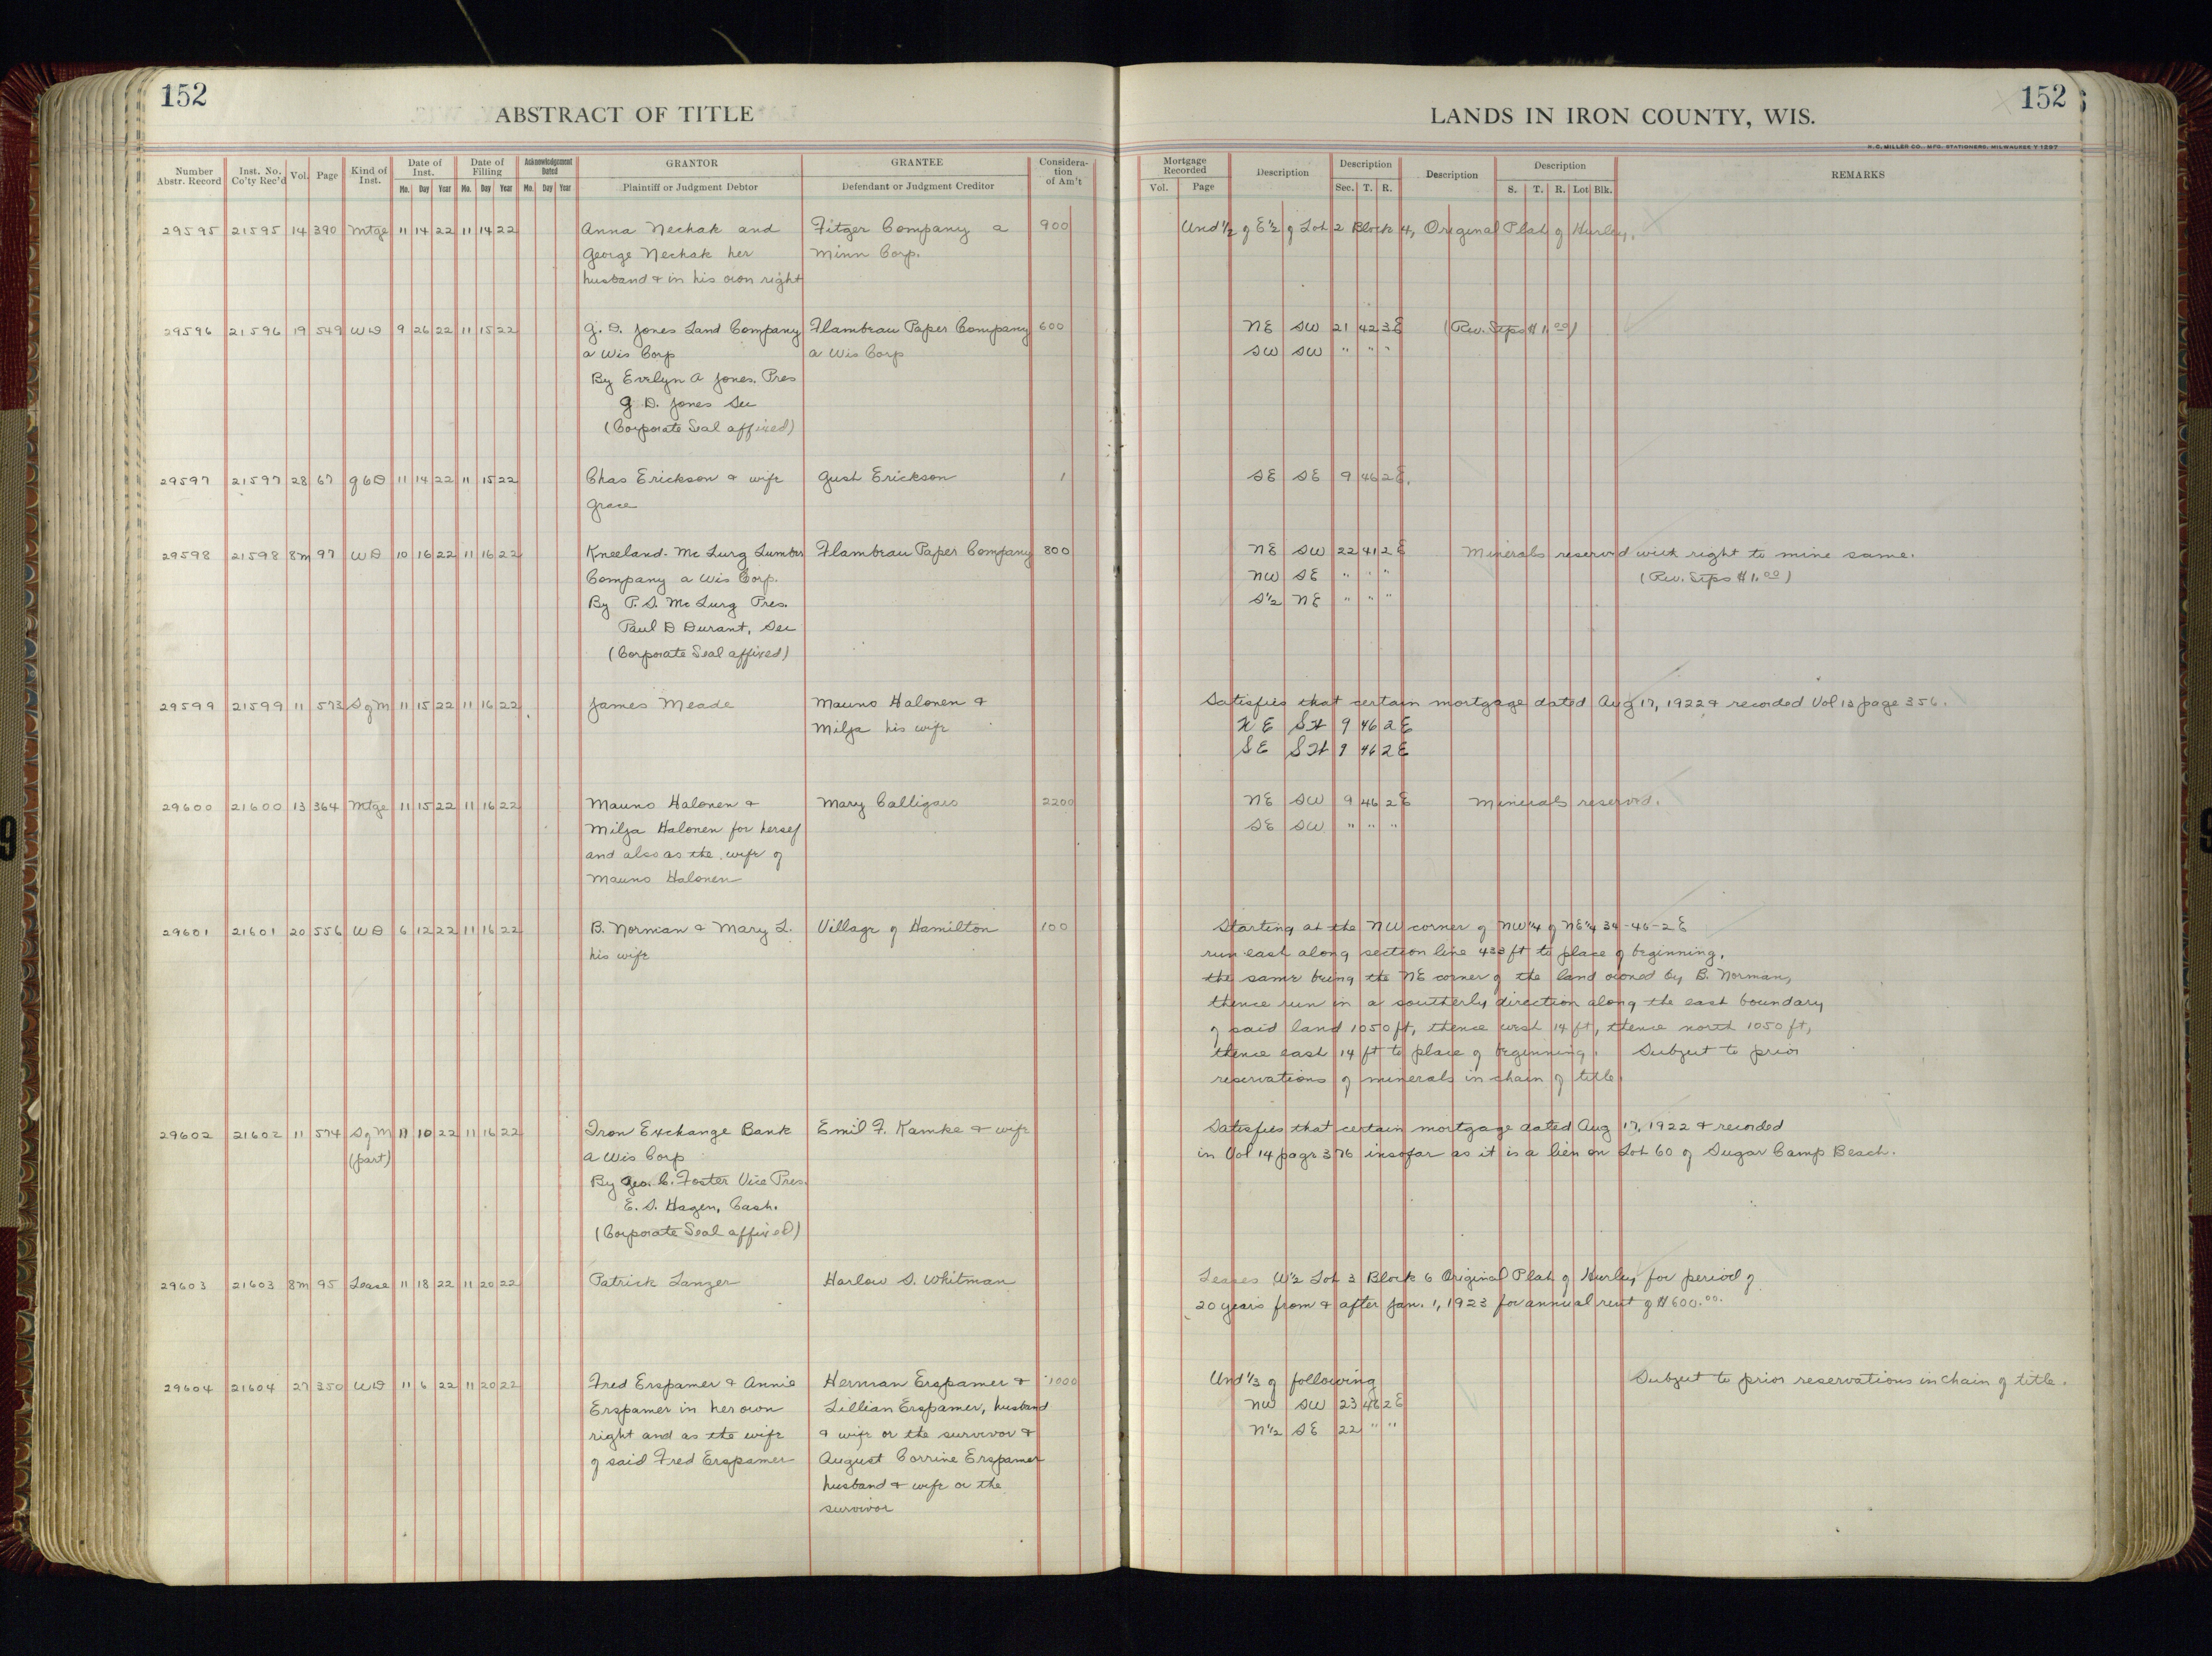 152
ABSTRACT OF TITLE
LANDS IN IRON COUNTY, WIS.
152
H.C. MILLER CO., MFG. STATIONERS, MILWAUKEE Y1297
Number Abstr. Record Inst. No. Co'ty Rec'd Vol. Page Kind of Inst. Date of Inst. Mo. Day Year Date of Filling Mo. Day Year Acknowledgement Dated Mo. Day Year GRANTOR Plaintiff or Judgment Debtor GRANTEE Defendant or Judgment Creditor Considera-tion of Am't
Mortgage Recorded Vol. Page Description Description Sec. T. R. Description Description S. T. R. Lot Blk. REMARKS
29595 21595 14 390 Mtge 11 14 22 11 14 22 Anna Nechak and Fitger Company a 900 Und 1/2 of E 1/2 of Lot 2 Block 4, Original Plat of Hurley.
George Nechak her Minn Corp.
husband & in his own right
29596 21596 19 549 WD 9 26 22 11 15 22 G. D. Jones Land Company Flambeau Paper Company 600 NE SW 21 42 3E (Rev. Stps $1.00)
a Wis Corp a Wis Corp SW SW " " "
By Evelyn A Jones, Pres
G D. Jones Sec
(Corporate Seal affixed)
29597 21597 28 67 QCD 11 14 22 11 15 22 Chas Erickson & wife Gust Erickson 1 SE SE 9 46 2E.
Grace
29598 21598 8m 97 WD 10 16 22 11 16 22 Kneeland-McLurg Lumber Flambeau Paper Company 800 NE SW 22 41 2E Minerals reserved with right to mine same.
Company a Wis Corp. NW SE " " " (Rev. Stps $1.00)
By P. S. McLurg Pres. S 1/2 NE " " "
Paul D Durant, Sec
(Corporate Seal affixed)
29599 21599 11 573 S of M 11 15 22 11 16 22 James Meade Mauno Halonen & Satisfies that certain mortgage dated Aug 17, 1922 & recorded Vol 13 page 356.
Milja his wife NE SW 9 46 2E
SE SW 9 46 2E
29600 21600 13 364 Mtge 11 15 22 11 16 22 Mauno Halonen & Mary Calligaro 2200 NE SW 9 46 2E Minerals reserved.
Milja Halonen for herself SE SW " " "
and also as the wife of
Mauno Halonen
29601 21601 20 556 WD 6 12 22 11 16 22 B. Norman & Mary L. Village of Hamilton 100 Starting at the NW corner of NW 1/4 of NE 1/4 34-46-2E
his wife run east along section line 433 ft to place of beginning,
the same being the NE corner of the land owned by B. Norman,
thence run in a southerly direction along the east boundary
of said land 1050 ft, thence west 14 ft, thence north 1050 ft,
thence east 14 ft to place of beginning. Subject to prior
reservations of minerals in chain of title.
29602 21602 11 574 S of M 11 10 22 11 16 22 Iron Exchange Bank Emil F. Kamke & wife Satisfies that certain mortgage dated Aug 17, 1922 & recorded
(part) a Wis Corp in Vol 14 page 376 insofar as it is a lien on Lot 60 of Sugar Camp Beach.
By Geo. C. Foster Vice Pres.
E. S. Hagen, Cash.
(Corporate Seal affixed)
29603 21603 8m 95 Lease 11 18 22 11 20 22 Patrick Lanzer Harlow S. Whitman Leases W 1/2 Lot 3 Block 6 Original Plat of Hurley for period of
20 years from & after Jan. 1, 1923 for annual rent of $600.00.
29604 21604 27 350 WD 11 6 22 11 20 22 Fred Erspamer & Annie Herman Erspamer & 1000 Und 1/3 of following Subject to prior reservations in chain of title.
Erspamer in her own Lillian Erspamer, husband NW SW 23 46 2E
right and as the wife & wife or the survivor & N 1/2 SE 22 " "
of said Fred Erspamer August Corrine Erspamer
husband & wife or the
survivor